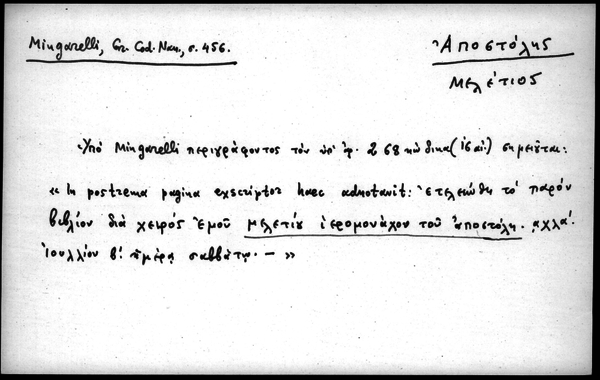 Mingarelli, Gr. Cod. Nan., σ. 456.
Ἀποστόλης
Μελέτιος
Ὑπὸ Mingarelli περιγράφοντος τὸν ὑπ' ἀρ. 268 κώδικα (ις αἰ.) σημειοῦται:
« In postrema pagina exscriptor haec adnotavit: Ἐτελειώθη τὸ παρὸν
βιβλίον διὰ χειρὸς ἐμοῦ μελετίου ἱερομονάχου τοῦ ἀποστόλη. αχλα΄.
Ἰουλλίου β΄. ἡμέρᾳ σαββάτῳ. — »